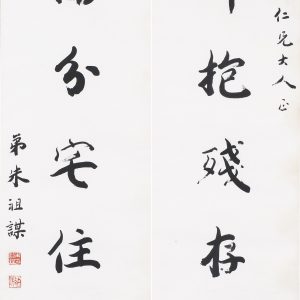 仁兄大人正
抱殘存
分宅住
弟朱祖謀